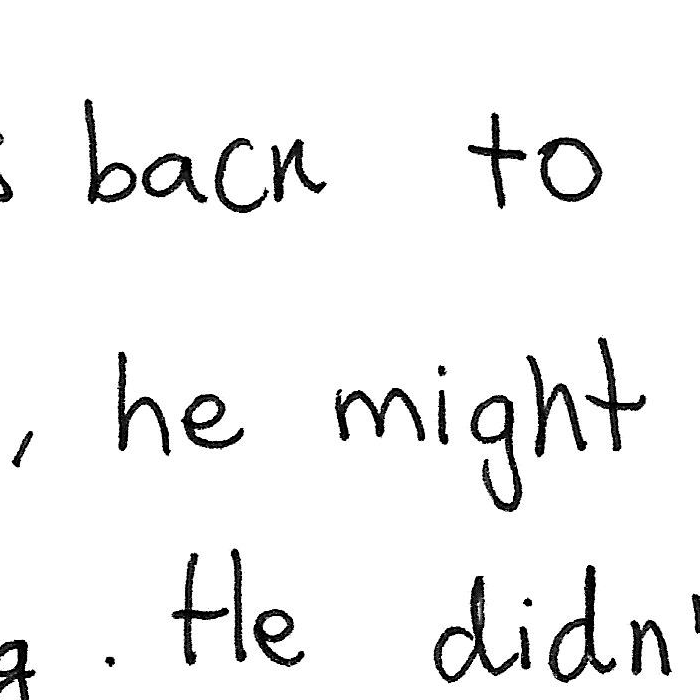 s back to
, he might
g. He didn'